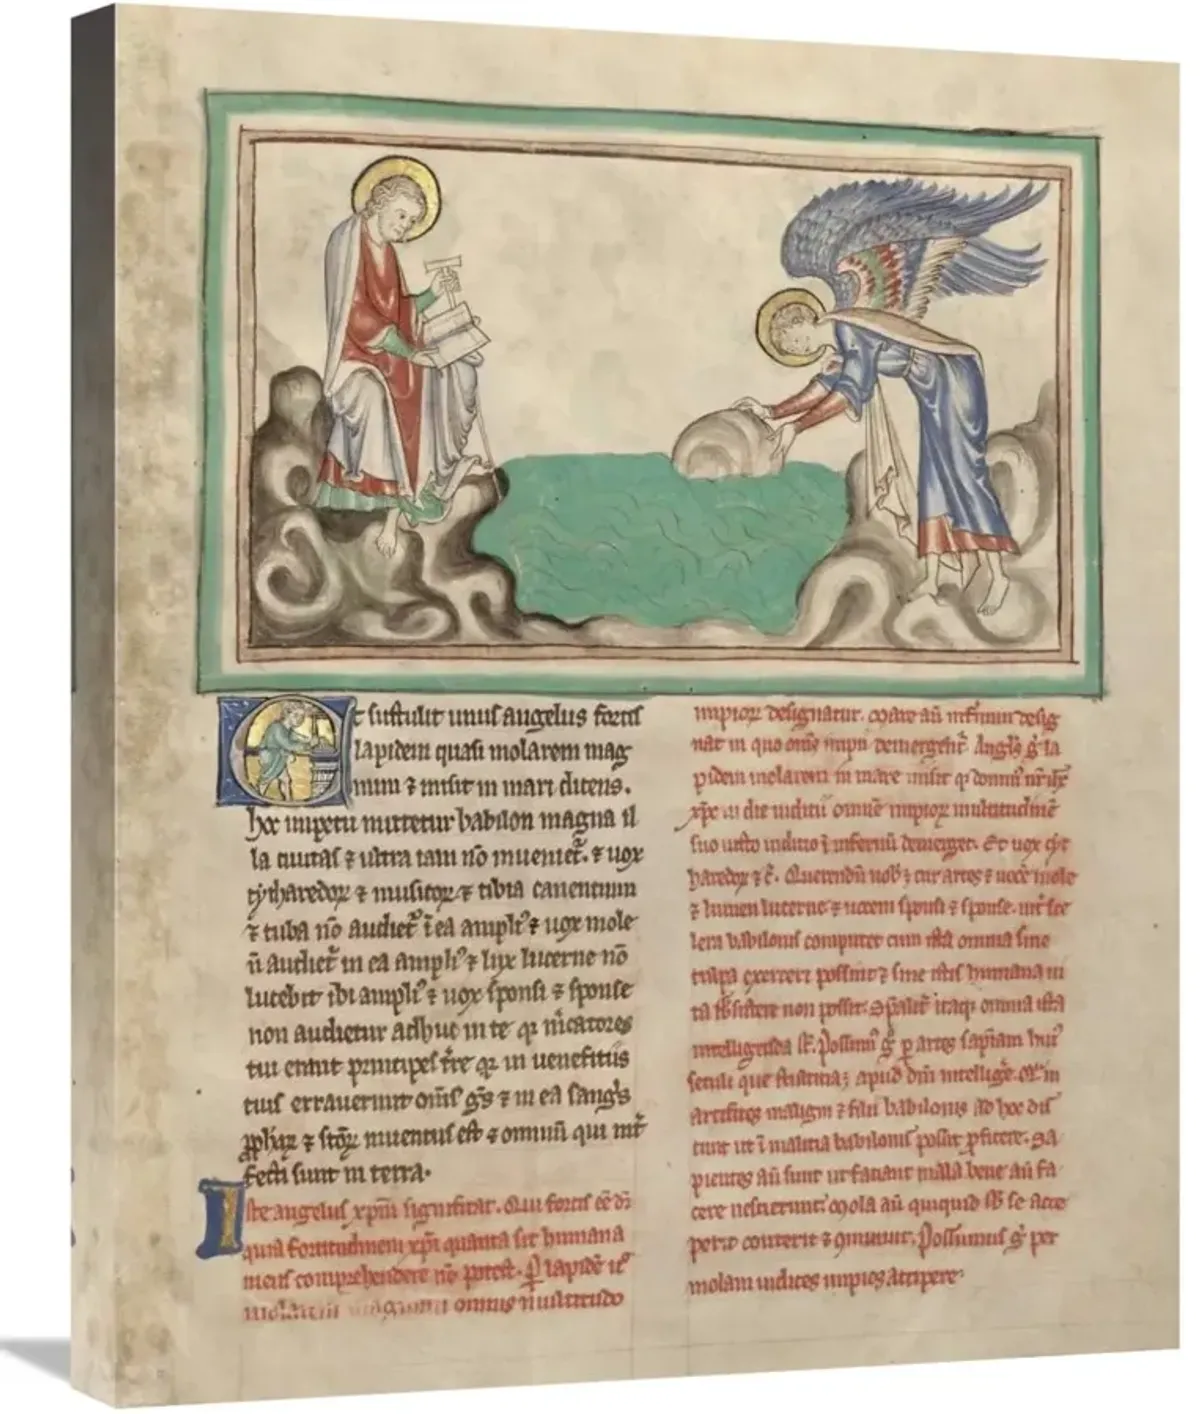 Et sustulit unus angelus fortis
lapidem quasi molarem mag
num ⁊ misit in mari dicens.
hoc impetu mittetur babilon magna il
la ciuitas ⁊ ultra iam nō inueniet᷑. ⁊ uox
cytharedoꝝ ⁊ musicoꝝ ⁊ tibia canentium
⁊ tuba nō audiet᷑ ī ea ampliꝰ ⁊ uox mole
ñ audiet᷑ in ea ampliꝰ ⁊ lux lucerne nō
lucebit ibi ampliꝰ ⁊ uox sponsi ⁊ sponse
non audietur adhuc in te qꝛ m̄catores
tui erant principes t̄re qꝛ in ueneficiis
tuis errauerunt om̄s ḡs ⁊ in ea sang's
ꝓph̄aꝝ ⁊ sc̄oꝝ inuentus est ⁊ omniū qui int̄
fecti sunt in terra.
Iste angelus xp̄m significat. Qui fortis
quia fortitudinem xp̄i quanta sit humana
mens comprehendere nō potest. P̱ lapidē
molarem magnum omnis multitudo
impioꝝ designatur. Mare aū infernum desig
nat in quo om̄s impii demergent᷑. Angl̄s g̊ la
pidem molarem in mare misit qꝛ domin' nr̄ ih̄c
xp̄c in die iudicii omnē impioꝝ multitudinē
suo iusto iudicio ī infernū demerget. Et uox cyt
haredoꝝ ⁊ c̄. Querendū nob' ⁊ cur artes ⁊ uocē mole
⁊ lumen lucerne ⁊ uocem sponsi ⁊ sponse. int̄ sce
lera babilonis computet cum ista omnia sine
culpa exerceri possint ⁊ sine istis humana ui
ta subsistere non possit. Sp̄alit̄ itaqꝫ omnia ista
intelligenda s̄t. Possum' g̊ p̱ artes sapiām hui'
seculi que stulticia apud dm̄ intelliḡe.
artifices maligni ⁊ fau babilonis ad hoc dis
cunt ut ī malicia babilonis possit ꝓficere. Sa
pientes aū sunt ut faciant mala bene aū fa
cere nescierunt. Mola aū quicquid sb' se acce
perit conterit ⁊ ꝯminuit. Possumus g̊ per
molam iudices impios accipere.